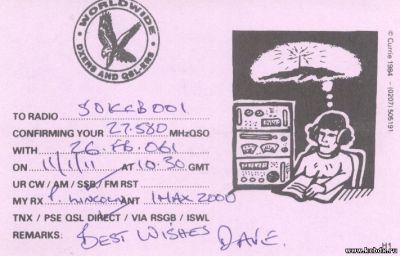 WORLDWIDE
DXERS AND QSLERS
© Currie 1984 - (0207) 505191
TO RADIO SDKCB001
CONFIRMING YOUR 27.580 MHz QSO
WITH 26.FB.061
ON 11/1/11 AT 10.30 GMT
UR CW / AM / SSB / FM RST
MY RX P. LINCOLN ANT IMAX 2000
TNX / PSE QSL DIRECT / VIA RSGB / ISWL
REMARKS: BEST WISHES DAVE.
H1
www.kcbdx.ru